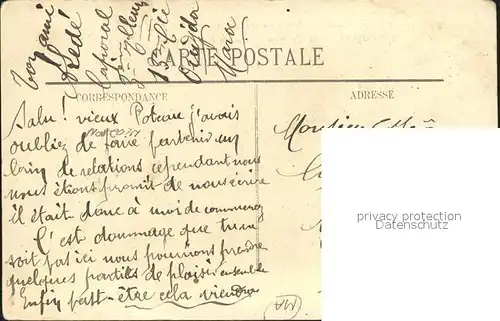 Ton ami
Frédé
Caporal
13 Cie
Oudjda
Maroc
CARTE POSTALE
CORRESPONDANCE
ADRESSE
Salu! vieux Poteau j'avais
oubliez de faire parvenir un
brin de relations cependant nous
nous étions promit de nous écrire
il était donc à moi de commencez
C'est dommage que tu ne
soit pas ici nous pourrions prendre
quelques parties de plaisir ensemble
Enfin peut-être cela viendra
Monsieur
privacy protection
Datenschutz
MA